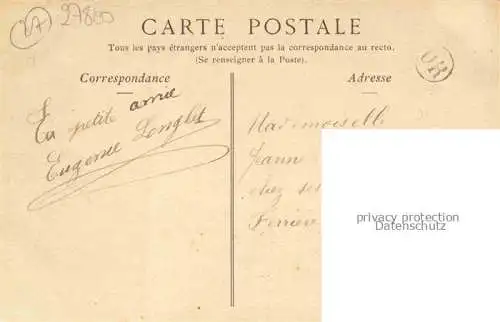 27 27800
CARTE POSTALE
Tous les pays étrangers n'acceptent pas la correspondance au recto.
(Se renseigner à la Poste).
OR
Correspondance
Adresse
Ta petite amie
Eugenie Longlet
Mademoiselle
Jeanne
chez ses
Ferrière
privacy protection
Datenschutz